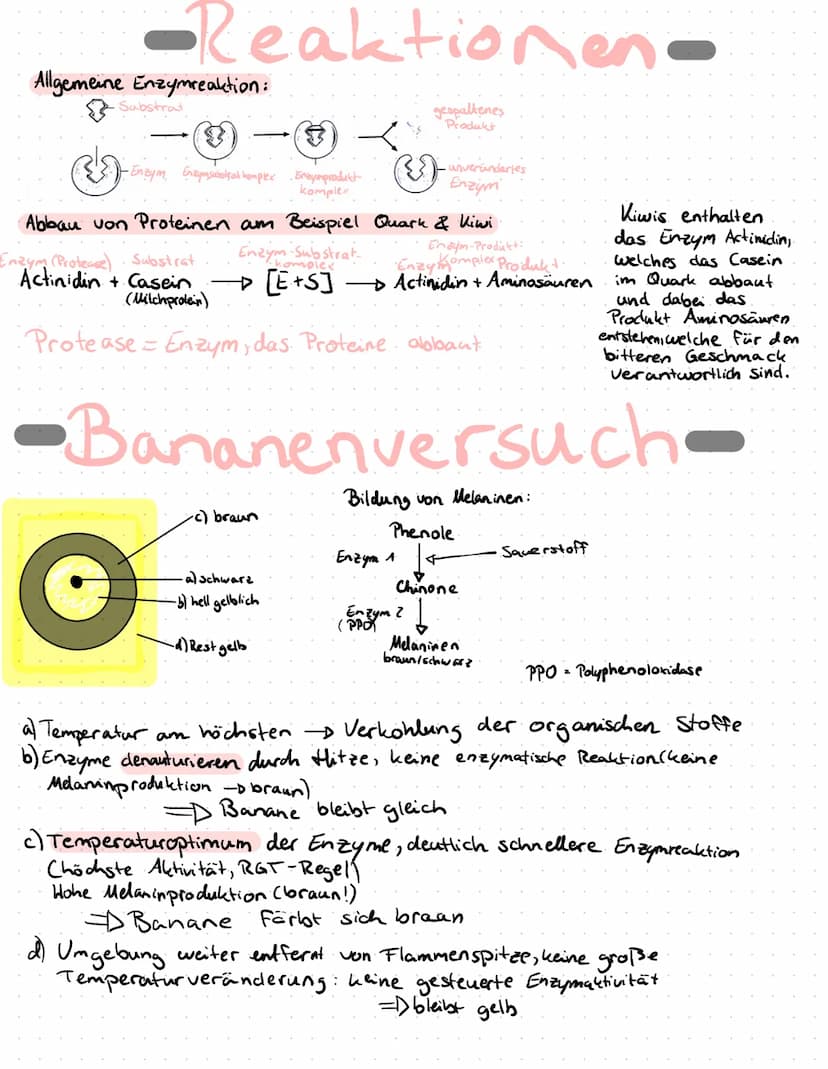 Reaktionen
Allgemeine Enzymreaktion:
Substrat
Enzym
Enzymsubstratkomplex
Enzymprodukt-
komplex
gespaltenes
Produkt
unverändertes
Enzym
Abbau von Proteinen am Beispiel Quark & Kiwi
Enzym (Protease)
Substrat
Enzym-Substrat-
komplex
Enzym-Produkt-
Komplex
Enzym
Produkt
Actinidin + Casein → [E+S] → Actinidin + Aminosäuren
(Milchprotein)
Protease = Enzym, das Proteine abbaut
Kiwis enthalten
das Enzym Actinidin,
welches das Casein
im Quark abbaut
und dabei das
Produkt Aminosäuren
entstehen, welche für den
bitteren Geschmack
verantwortlich sind.
Bananenversuch
c) braun
a) schwarz
b) hell gelblich
d) Rest gelb
Bildung von Melaninen:
Phenole
Enzym 1
Sauerstoff
Chinone
Enzym 2
(PPO)
Melaninen
braun/schwarz
PPO = Polyphenoloxidase
a) Temperatur am höchsten → Verkohlung der organischen Stoffe
b) Enzyme denauturieren durch Hitze, keine enzymatische Reaktion (keine
Melaninproduktion → braun)
⇒ Banane bleibt gleich
c) Temperaturoptimum der Enzyme, deutlich schnellere Enzymreaktion
(höchste Aktivität, RGT-Regel)
Hohe Melaninproduktion (braun!)
⇒ Banane färbt sich braun
d) Umgebung weiter entfernt von Flammenspitze, keine große
Temperaturveränderung: keine gesteuerte Enzymaktivität
⇒ bleibt gelb